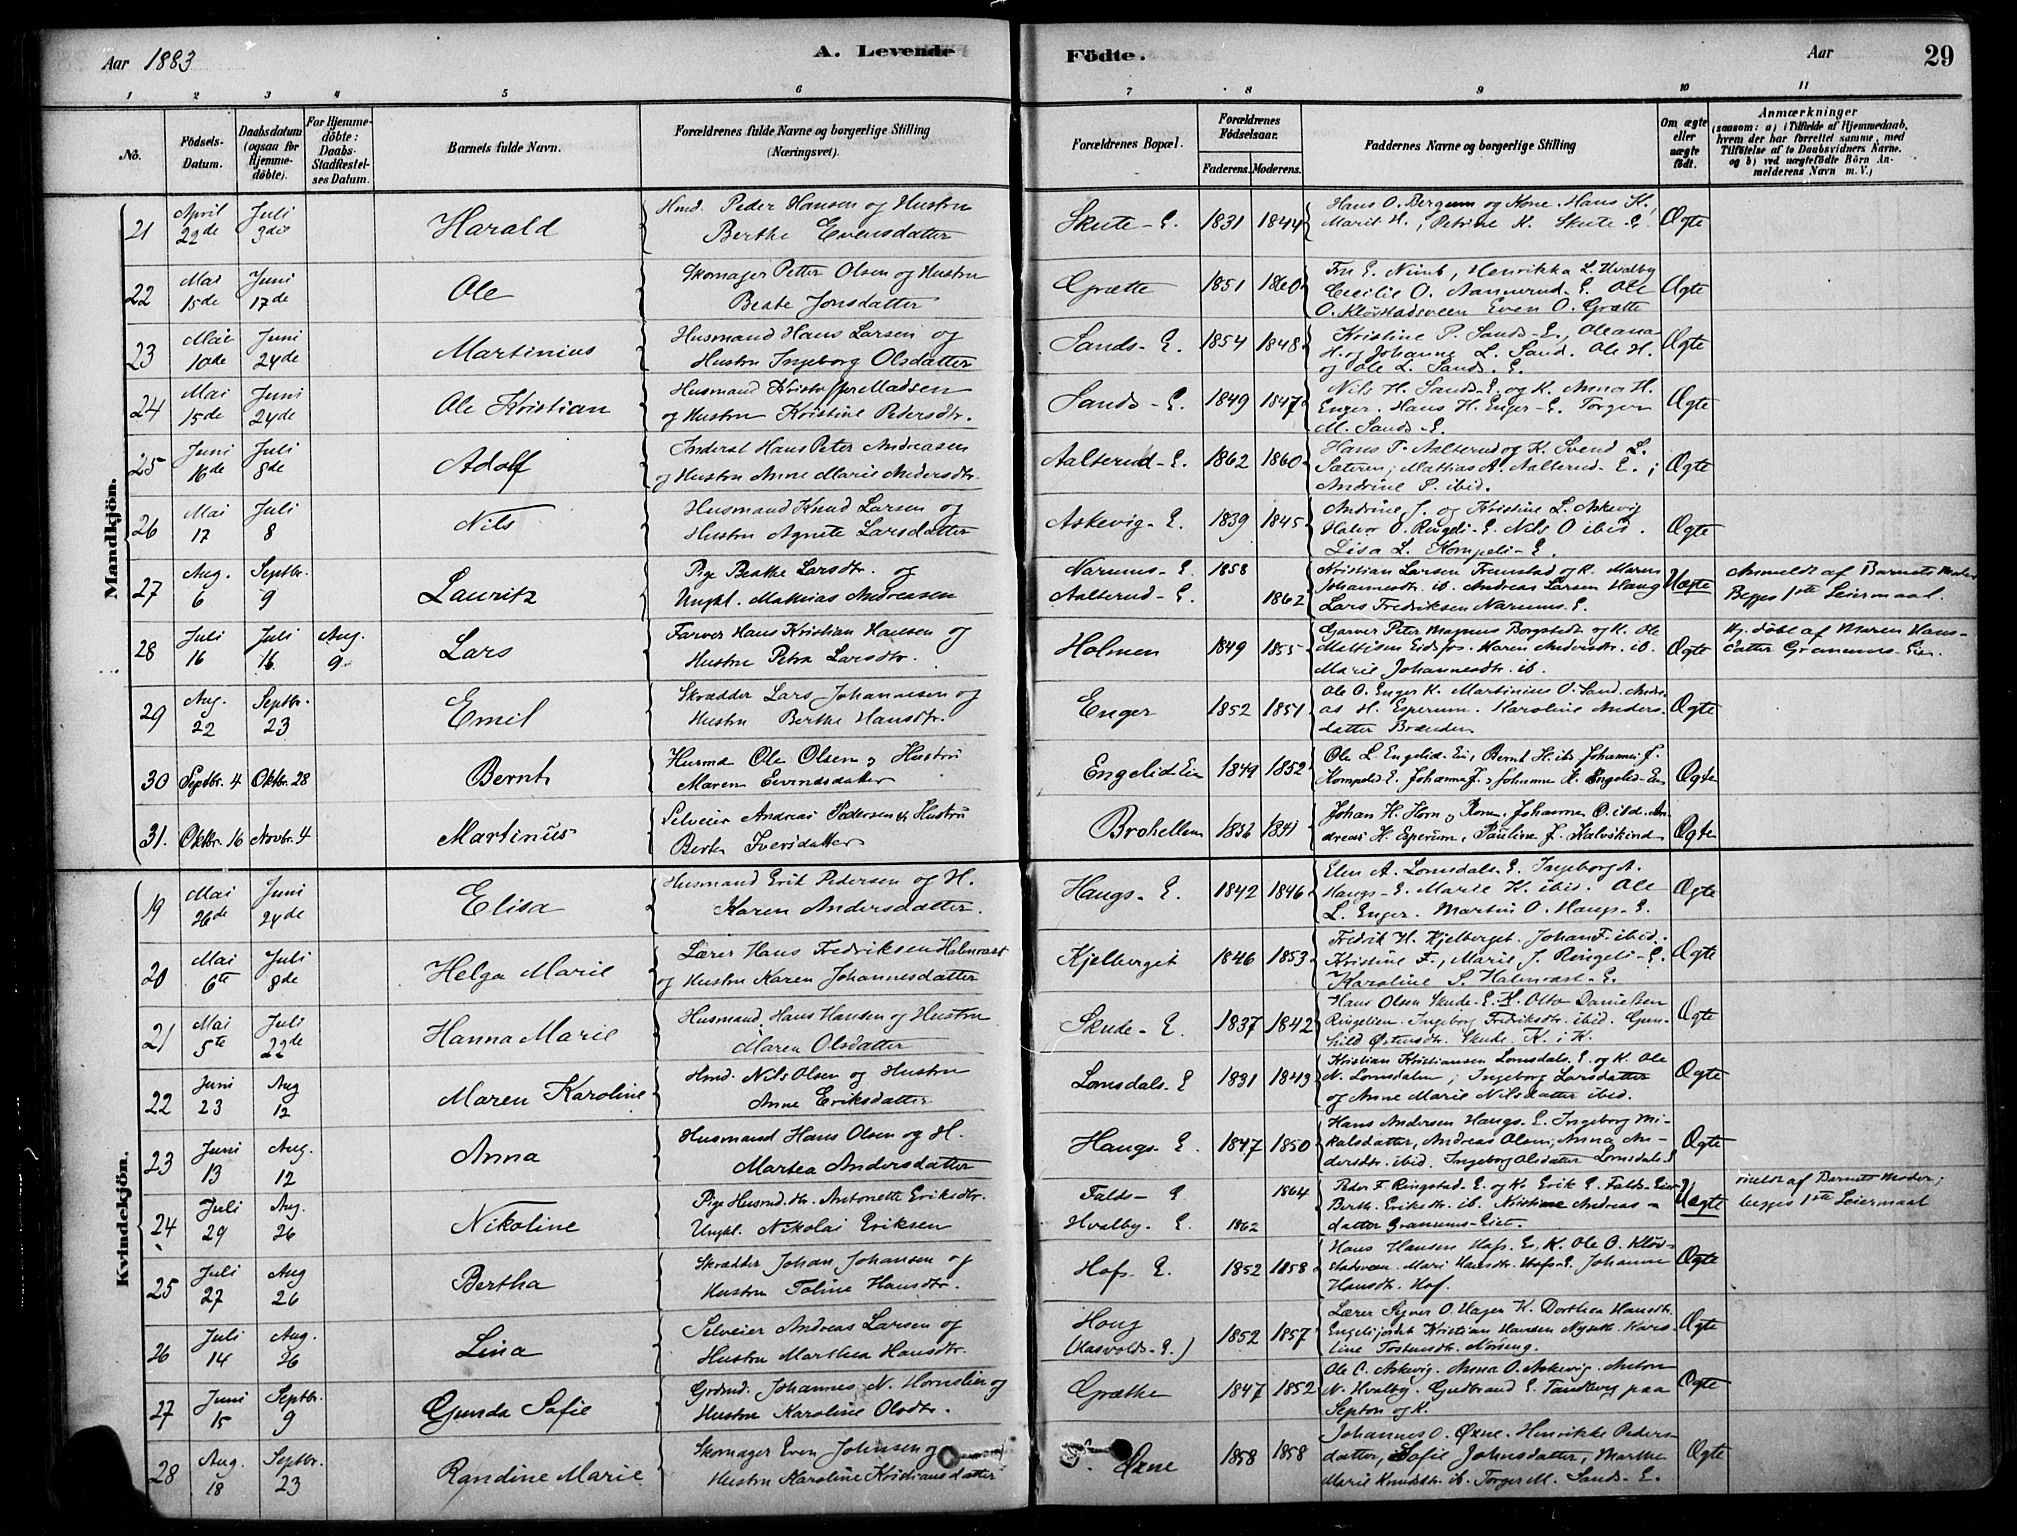 Aar 1883
A. Levende
Födte.
Aar
29
1 2 3 4 5 6 7 8 9 10 11
No.
Födsels-Datum.
Daabsdatum (ogsaa for Hjemme-döbte).
For Hjemme-döbte: Daabs-Stadfæstel-ses Datum.
Barnets fulde Navn.
Forældrenes fulde Navne og borgerlige Stilling (Næringsvei).
Forældrenes Bopæl.
Forældrenes Födselsaar.
Faderens. Moderens.
Faddernes Navne og borgerlige Stilling
Om ægte eller uægte födt.
Anmærkninger
(saasom: a) i Tilfælde af Hjemmedaab, hvem der har forrettet samme, med Tilföielse af to Daabsvidners Navne. og b) ved uægtefödte Börn An-melderens Navn m. V.)
Mandkjön.
21 April 22de Juli 3die Harald Hmd. Peder Hansen og Hustru
Berthe Evensdatter Skute-E. 1831 1844 Hans O. Bergum og Kone. Hans H.,
Marit H., Petrine K. Skute-E. Ægte
22 Mai 15de Juni 17de Ole Skomager Petter Olsen og Hustru
Beate Jonsdatter Grætte 1851 1860 Henrikka L. Hvalby
Cecilie O. Aannerud-E. Ole
Even O. Grætte Ægte
23 Mai 10de Juni 24de Martinius Husmand Hans Larsen og
Hustru Ingeborg Olsdatter Sands-E. 1854 1848 Kristine P. Sands-E., Oleana
H. og Johanne L. Sand. Ole H.
og Ole L. Sands. E. Ægte
24 Mai 15de Juni 24de Ole Kristian Husmand Kristoffer Madsen
og Hustru Kristine Pedersdtr. Sands-E. 1849 1847 Nils H. Sands-E. og K. Anna H.
Enger. Hans H. Enger-E. Torger
M. Sands-E. Ægte
25 Juni 16de Juli 8de Adolf Inderst Hans Peter Andreasen
og Hustru Anne Marie Andersdtr. Aalterud-E. 1862 1860 Hans T. Aalterud og K. Svend L.
Mathias A. Aalterud-E.;
Andrine P. ibid. Ægte
26 Mai 17 Juli 8 Nils Husmand Knud Larsen og
Hustru Agnete Larsdatter Askevig-E. 1839 1845 Andrine J. og Kristine L. Askevig
Halvor O. Ringeli-E. Nils O ibid.
Lisa L. Kompeli-E. Ægte
27 Aug. 6 Septbr. 9 Lauritz Pige Beathe Larsdtr. og
Ungkl. Mathias Andreasen Narums-E. Aalterud-E. 1858 1862 Kristian Larsen Fremstad og K. Maren
Johannesdtr. ib. Andreas Larsen Haug
Lars Fredriksen Narums-E. Uægte Anmeldt af Barnets Moder
Begges 1ste Leiermaal.
28 Juli 16 Juli 16 Aug. 9 Lars Farver Hans Kristian Hansen og
Hustru Petra Larsdtr. Holmen 1849 1855 Garver Peter Magnus Borgstedt og K. Ole
Mathisen Eidsfos. Karen Andersdtr. ib.
Marie Johannesdtr. ib. Ægte Hj. döbt af Maren Hans-
datter Granums-Eie.
29 Aug. 22 Septbr. 23 Emil Skrædder Lars Johannesen og
Hustru Berthe Hansdtr. Enger 1852 1851 Ole O. Enger K. Martinius O. Sand. Andre-
as H. Esperum. Karoline Anders-
datter Brænden Ægte
30 Septbr. 4 Oktbr. 28 Bernt Husmd Ole Olsen og Hustru
Maren Eevindsdatter Engelid Eie 1849 1852 Ole L. Engelid-Ei, Bernt H. ib. Johannes J.
Kompelid-E. Johanne J. & Johanne H. Engelid-Ei Ægte
31. Oktbr. 16 Novbr. 4 Martinius Selveier Andreas Pedersen & Hustru
Berte Iversdatter Brohellen 1836 1841 Johan H. Horn og Kone. Johanne O. ibid. An-
dreas H. Esperum, Pauline J. Kalvskind Ægte
Kvindekjön.
19 Mai 26de Juni 24de Elisa Husmand Erik Pedersen og H.
Karen Andersdatter. Haugs-E. 1842 1846 Elen A. Lomsdals-E. Ingeborg A.
Haugs-E. Marie K. ibid. Ole
L. Enger. Martin O. Haugs-E. Ægte
20 Mai 6te Juli 8de Helga Marie Lærer Hans Fredriksen Halmrast
og Hustru Karen Johannesdatter Kjelberget 1846 1853 Fredrik H. Kjelberget. Johan F. ibid.
Kristine F., Marie J. Ringeli-E.
Karoline S. Halmrast-E. Ægte
21 Mai 5te Juli 22de Hanna Marie Husmand Hans Hansen og Hustru
Maren Olsdatter Skude-E. 1837 1842 Hans Olsen Skude-E. K. Otto Danielsen
Ringelien. Ingeborg Fredriksdtr. ibid. Gun-
hild Østensdtr. Skude. K. i K. Ægte
22 Juni 23 Aug 12 Maren Karoline Hmd. Nils Olsen og Hustru
Anne Eriksdatter Lomsdals-E 1831 1843 Kristian Kristiansen Lomsdals. E. og K. Ole
N. Lomsdalen; Ingeborg Larsdatter
og Anne Marie Nilsdatter ibid. Ægte
23 Juni 13 Aug. 12 Anna Husmand Hans Olsen og H.
Martea Andersdatter Haugs-E. 1847 1850 Hans Andersen Haugs-E. Ingeborg Mi-
kalsdatter, Andreas Olsen, Anna An-
dersdtr. ibid. Ingeborg Olsdatter Lomsdals-E Ægte
24 Juli 29 Aug. 26 Nikoline Pige Husmd. dtr. Antonette Eriksdtr.
Ungkl. Nikolai Eriksen Falds-E Hvalby-E. 1864 1862 Peder F. Ringstad. E. og K. Erik E. Falds-Eie
Berth. Eriksdtr. ib. Kristine Andreas-
datter Granums-Eiet. Uægte meldt af Barnets Moder;
begges 1ste Leiermaal
25 Juli 27 Aug 26 Bertha Skrædder Johan Johansen og
Hustru Toline Hansdtr. Hofs-E. 1852 1858 Hans Hansen Hofs-E., K. Ole O. Klös-
stadsveen. Mari Hansdtr. Hofs-E. Johanne
Hansdtr. Hof. Ægte
26 Juli 14 Aug. 26 Lina Selveier Andreas Larsen og
Hustru Marthea Hansdtr. Houg (Kasvolds-E.) 1852 1857 Lærer Syver O. Hagen K. Dorthea Hansdtr.
Engelijordet Kristian Hansen Karo-
line Tostensdtr. Ægte
27 Juni 15 Septbr. 9 Gunda Sofie Grdmd. Johannes N. Hornslien og
Hustru Karoline Olsdtr. Græthe 1847 1852 Ole C. Askevig. Anna O. Askevig. Anton
N. Hvalby. Gudbrand E. Tandberg paa
Septon og K. Ægte
28 Aug. 18 Septbr. 23 Randine Marie Skomager Even Johnsen og
Hustru Karoline Kristiansdatter Øxne 1858 1858 Johannes O. Øxne. Henrikke Peders-
datter, Sofie Johnsdatter, Marthe
Marie Knudsdtr. ib. Torger M. Sands-E. Ægte